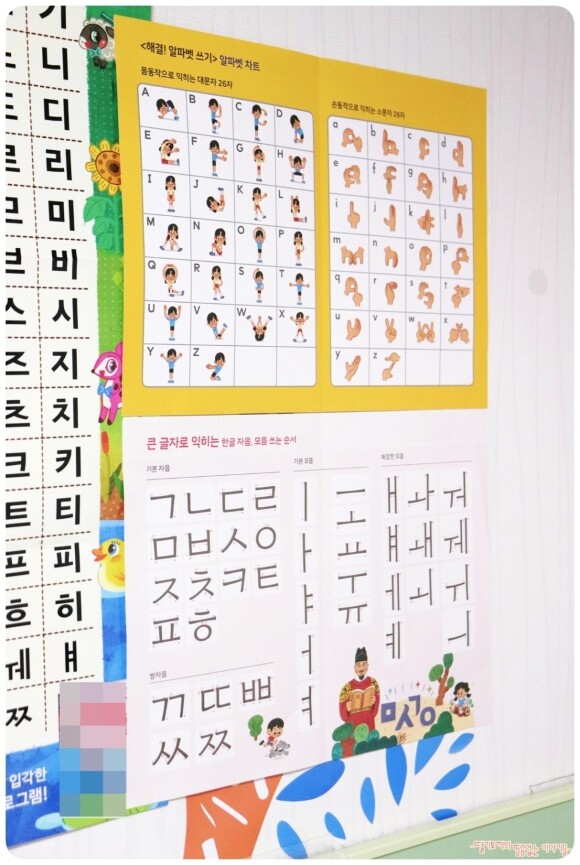 기
니
디
리
미
비
시
지
치
키
티
피
히
ㅒ
ㅉ
입각한
로그램!
<해결! 알파벳 쓰기> 알파벳 차트
몸동작으로 익히는 대문자 26자
A B C D
E F G H
I J K L
M N O P
Q R S T
U V W X
Y Z
손동작으로 익히는 소문자 26자
a b c d
e f g h
i j k l
m n o p
q r s t
u v w x
y z
큰 글자로 익히는 한글 자음, 모음 쓰는 순서
기본 자음
ㄱ ㄴ ㄷ ㄹ
ㅁ ㅂ ㅅ ㅇ
ㅈ ㅊ ㅋ ㅌ
ㅍ ㅎ
쌍자음
ㄲ ㄸ ㅃ
ㅆ ㅉ
기본 모음
ㅣ ㅡ
ㅏ ㅗ
ㅑ ㅛ
ㅓ ㅜ
ㅕ ㅠ
복잡한 모음
ㅐ ㅘ ㅝ
ㅒ ㅙ ㅞ
ㅔ ㅚ ㅟ
ㅖ ㅢ